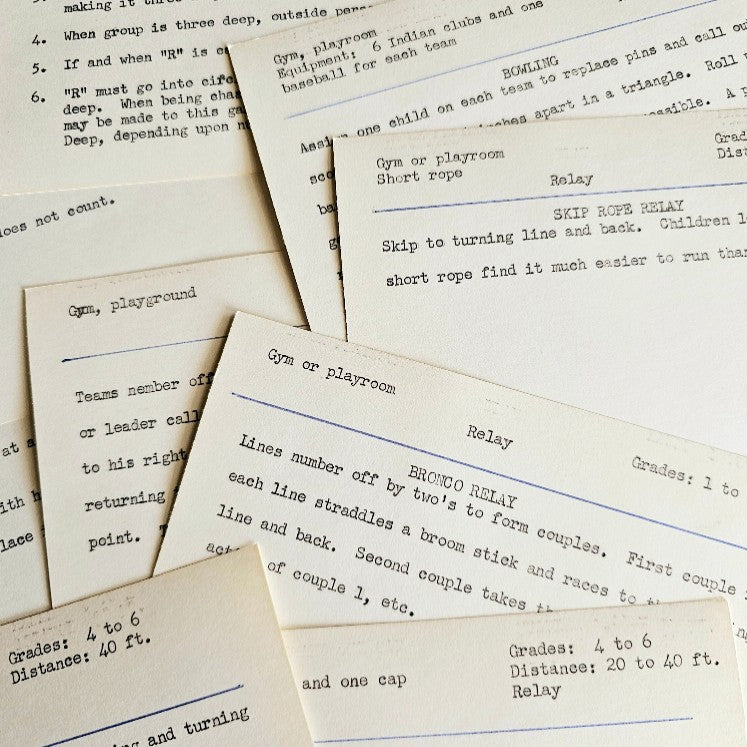 making it
4. When group is three deep, outside
5. If and when "R" is
6. "R" must go into
deep. When being
may be made to this
Deep, depending upon
does not count.
Gym, playroom
Equipment: 6 Indian clubs and one
baseball for each team
BOWLING
one child on each team to replace pins and call
apart in a triangle. Roll
Gym or playroom
Short rope
Relay
SKIP ROPE RELAY
Skip to turning line and back. Children
short rope find it much easier to run than
Gym, playground
Teams nember off
or leader call
to his right
returning
point.
at
Gym or playroom
Relay
Grades: 1 to
BRONCO RELAY
Lines number off by two's to form couples. First couple
each line straddles a broom stick and races to
line and back. Second couple takes
of couple 1, etc.
Grades: 4 to 6
Distance: 40 ft.
and turning
and one cap
Grades: 4 to 6
Distance: 20 to 40 ft.
Relay